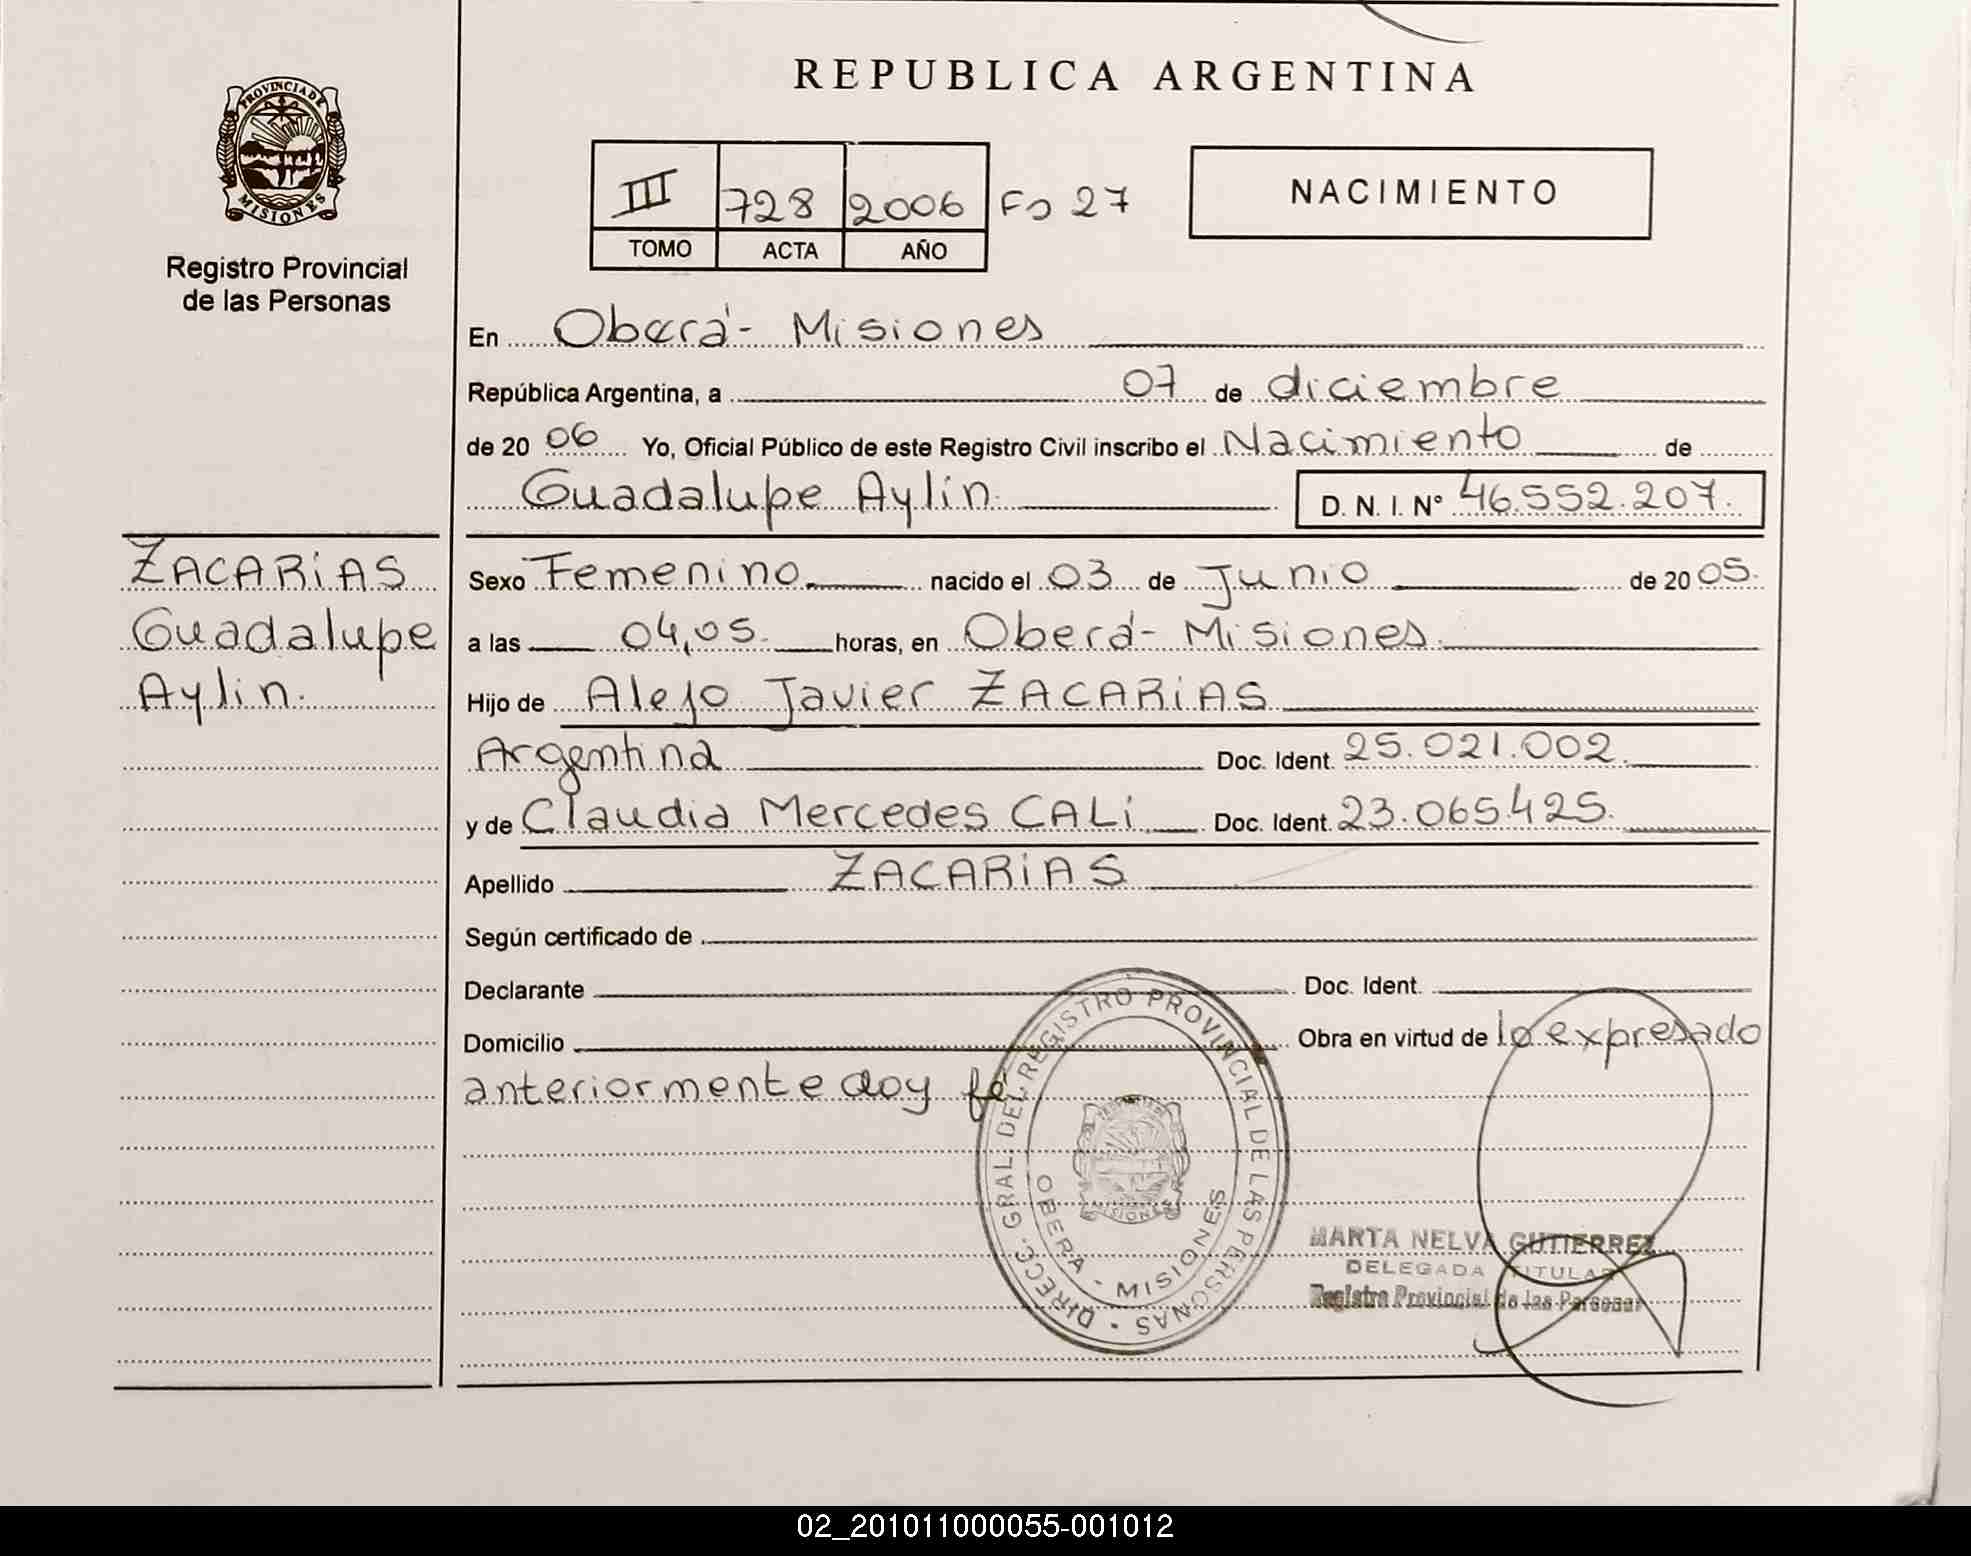 REPUBLICA ARGENTINA
PROVINCIA DE
MISIONES
Registro Provincial
de las Personas
III 728 2006 Fo 27
TOMO ACTA AÑO
NACIMIENTO
En Oberá - Misiones
República Argentina, a 07 de diciembre
de 20 06 Yo, Oficial Público de este Registro Civil inscribo el Nacimiento de
Guadalupe Aylin. D. N. I. Nº 46.552.207.
ZACARiAS
Guadalupe
Aylin.
Sexo Femenino nacido el 03 de Junio de 20 05.
a las 04,05. horas, en Oberá - Misiones.
Hijo de Alejo Javier ZACARiAS
Argentina Doc. Ident. 25.021.002.
y de Claudia Mercedes CALi Doc. Ident. 23.065.425.
Apellido ZACARiAS
Según certificado de
Declarante Doc. Ident.
Domicilio Obra en virtud de lo expresado
anteriormente doy fé
DIRECC. GRAL. DEL REGISTRO PROVINCIAL DE LAS PERSONAS -
OBERA - MISIONES
MISIONES
MARTA NELVA GUTIERREZ
DELEGADA TITULAR
Registro Provincial de las Personas
02_201011000055-001012